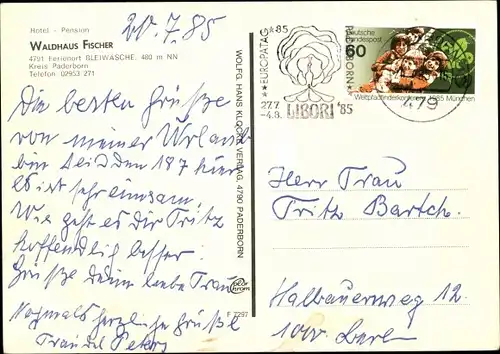 20.7.85
Hotel - Pension
WALDHAUS FISCHER
4791 Ferienort BLEIWÄSCHE, 480 m NN
Kreis Paderborn
Telefon 02953 271
Die besten Grüße
von meiner Urlaub
bin seit den 18 7 hier
es ist sehr einsam.
Wie geht es dir Fritz
hoffendlich besser.
Grüße deine liebe Frau
Nochmals herzliche Grüße
Traudel Peters
WOLFG. HANS KLOCKE VERLAG, 4790 PADERBORN
F 7297
EUROPATAG '85
PADERBORN
27.7
-4.8.
LIBORI '85
479
Deutsche Bundespost
60
Weltpfadfinderkonferenz 1985 München
Herr Frau
Fritz Bartch.
Halbauerweg 12
1000 Berl